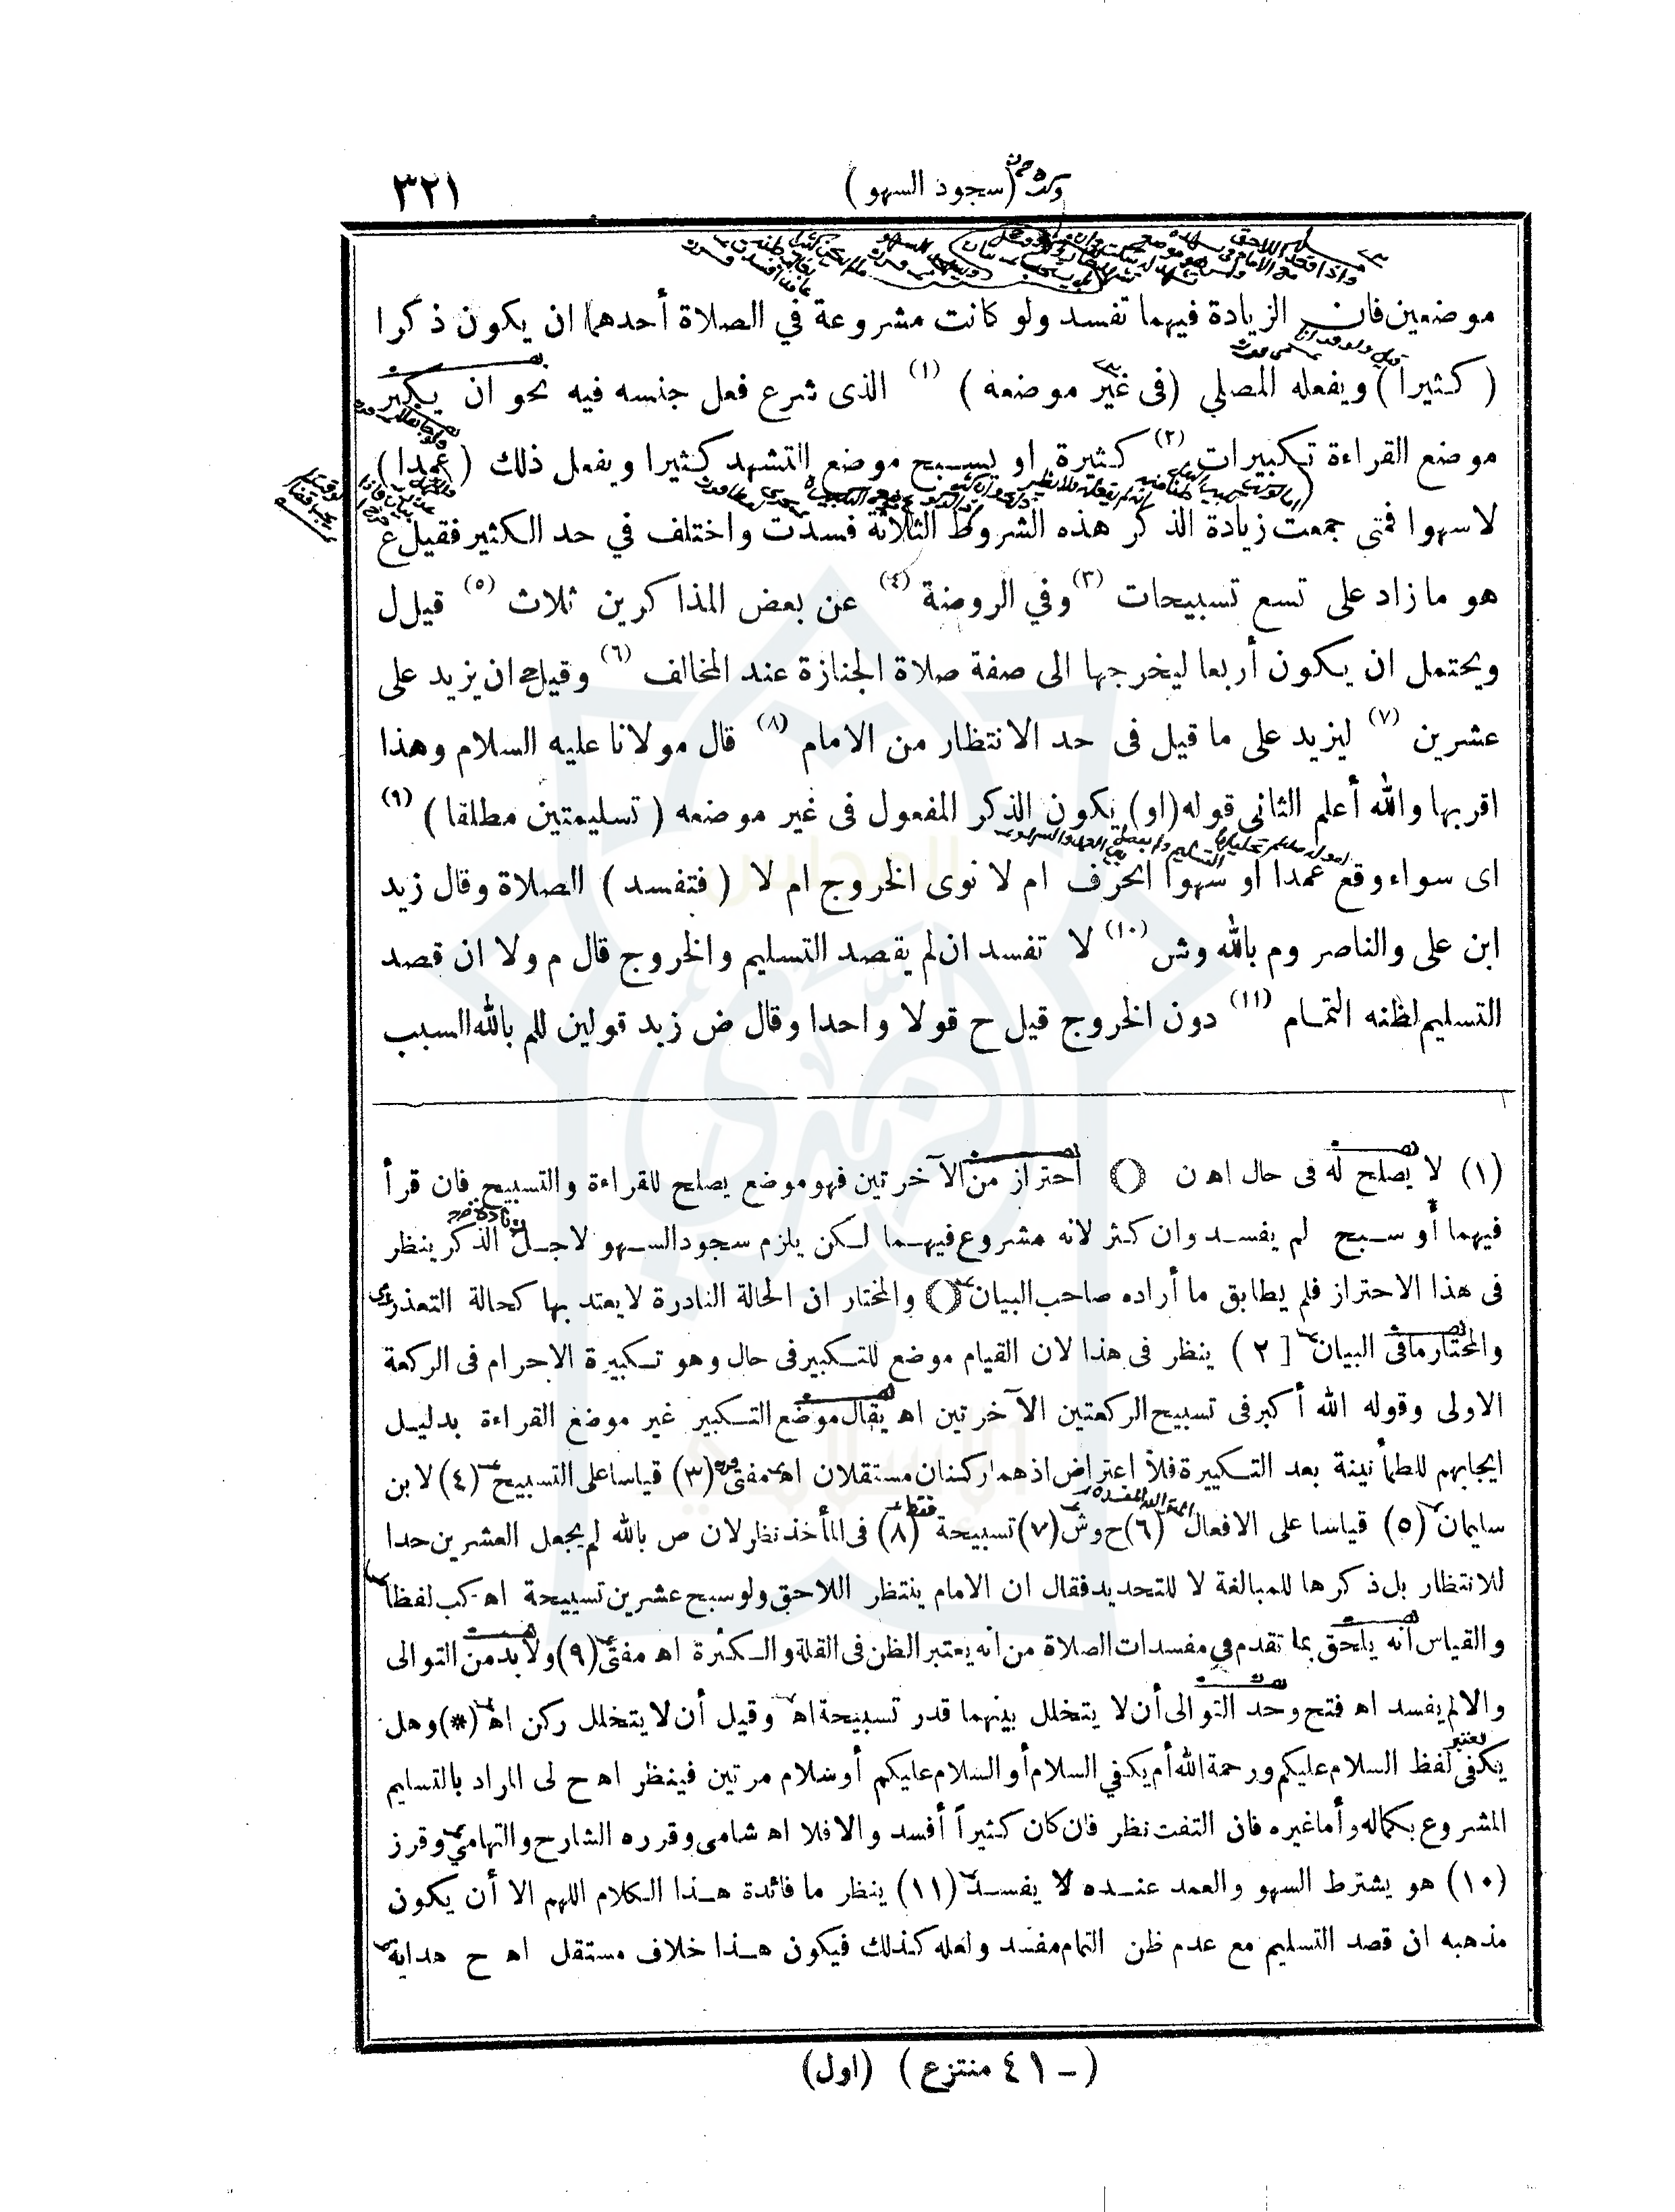 (سجود السهو)
٣٢١
موضعين فان الزيادة فيهما تفسد ولو كانت مشروعة في الصلاة أحدهما ان يكون ذكرا
(كثيرا) ويفعله المصلي (فى غير موضعه) (١) الذى شرع فعل جنسه فيه نحو ان يكبر
موضع القراءة تكبيرات (٢) كثيرة او يسبح موضع التشهد كثيرا ويفعل ذلك (عمدا)
لا سهوا فمتى جمعت زيادة الذكر هذه الشروط الثلاثة فسدت واختلف في حد الكثير فقيل ع
هو ما زاد على تسع تسبيحات (٣) وفي الروضة (٤) عن بعض المذاكرين ثلاث (٥) قيل ل
ويحتمل ان يكون أربعا ليخرجها الى صفة صلاة الجنازة عند المخالف (٦) وقيل ح ان يزيد على
عشرين (٧) ليزيد على ما قيل فى حد الانتظار من الامام (٨) قال مولانا عليه السلام وهذا
اقربها والله أعلم الثانى قوله (او) يكون الذكر المفعول فى غير موضعه (تسليمتين مطلقا) (٩)
اى سواء وقع عمدا او سهوا انحرف ام لا نوى الخروج ام لا (فتفسد) الصلاة وقال زيد
ابن على والناصر وم بالله وش (١٠) لا تفسد ان لم يقصد التسليم والخروج قال م ولا ان قصد
التسليم لظنه التمام (١١) دون الخروج قيل ح قولا واحدا وقال ض زيد قولين للم بالله السبب
(١) لا يصلح له فى حال اه ن () احتراز من الآخرتين فهو موضع يصلح للقراءة والتسبيح فان قرأ
فيهما أو سبح لم يفسد وان كثر لانه مشروع فيهما لكن يلزم سجود السهو لاجل الذكر ينظر
فى هذا الاحتراز فلم يطابق ما أراده صاحب البيان () والمختار ان الحالة النادرة لا يعتد بها كحالة التعذر
والمختار مافى البيان [٢) ينظر فى هذا لان القيام موضع للتكبير فى حال وهو تكبيرة الاحرام فى الركعة
الاولى وقوله الله أكبر فى تسبيح الركعتين الآخرتين اه يقال موضع التكبير غير موضع القراءة بدليل
ايجابهم للطمأنينة بعد التكبيرة فلا اعتراض اذ هما ركنان مستقلان اه مفتى (٣) قياسا على التسبيح (٤) لابن
سليمان (٥) قياسا على الافعال (٦) ح وش (٧) تسبيحة فقط (٨) فى المأخذ نظر لان ص بالله لم يجعل العشرين حدا
للانتظار بل ذكرها للمبالغة لا للتحديد فقال ان الامام ينتظر اللاحق ولو سبح عشرين تسبيحة اه كب لفظا
والقياس أنه يلحق بما تقدم في مفسدات الصلاة من أنه يعتبر الظن فى القلة والكثرة اه مفتى (٩) ولا بد من التوالى
والا لم يفسد اه فتح وحد التوالى أن لا يتخلل بينهما قدر تسبيحة اه وقيل أن لا يتخلل ركن اه (*) وهل
يكفى لفظ السلام عليكم ورحمة الله أم يكفي السلام أو السلام عليكم أو سلام مرتين فينظر اه ح لى المراد بالتسليم
المشروع بكماله وأما غيره فان التفت نظر فان كان كثيرا أفسد والا فلا اه شامى وقرره الشارح والتهامي وقرز
(١٠) هو يشترط السهو والعمد عنده لا يفسد (١١) ينظر ما فائدة هذا الكلام اللهم الا أن يكون
مذهبه ان قصد التسليم مع عدم ظن التمام مفسد ولعله كذلك فيكون هذا خلاف مستقل اه ح هداية
(- ٤١ منتزع) (اول)